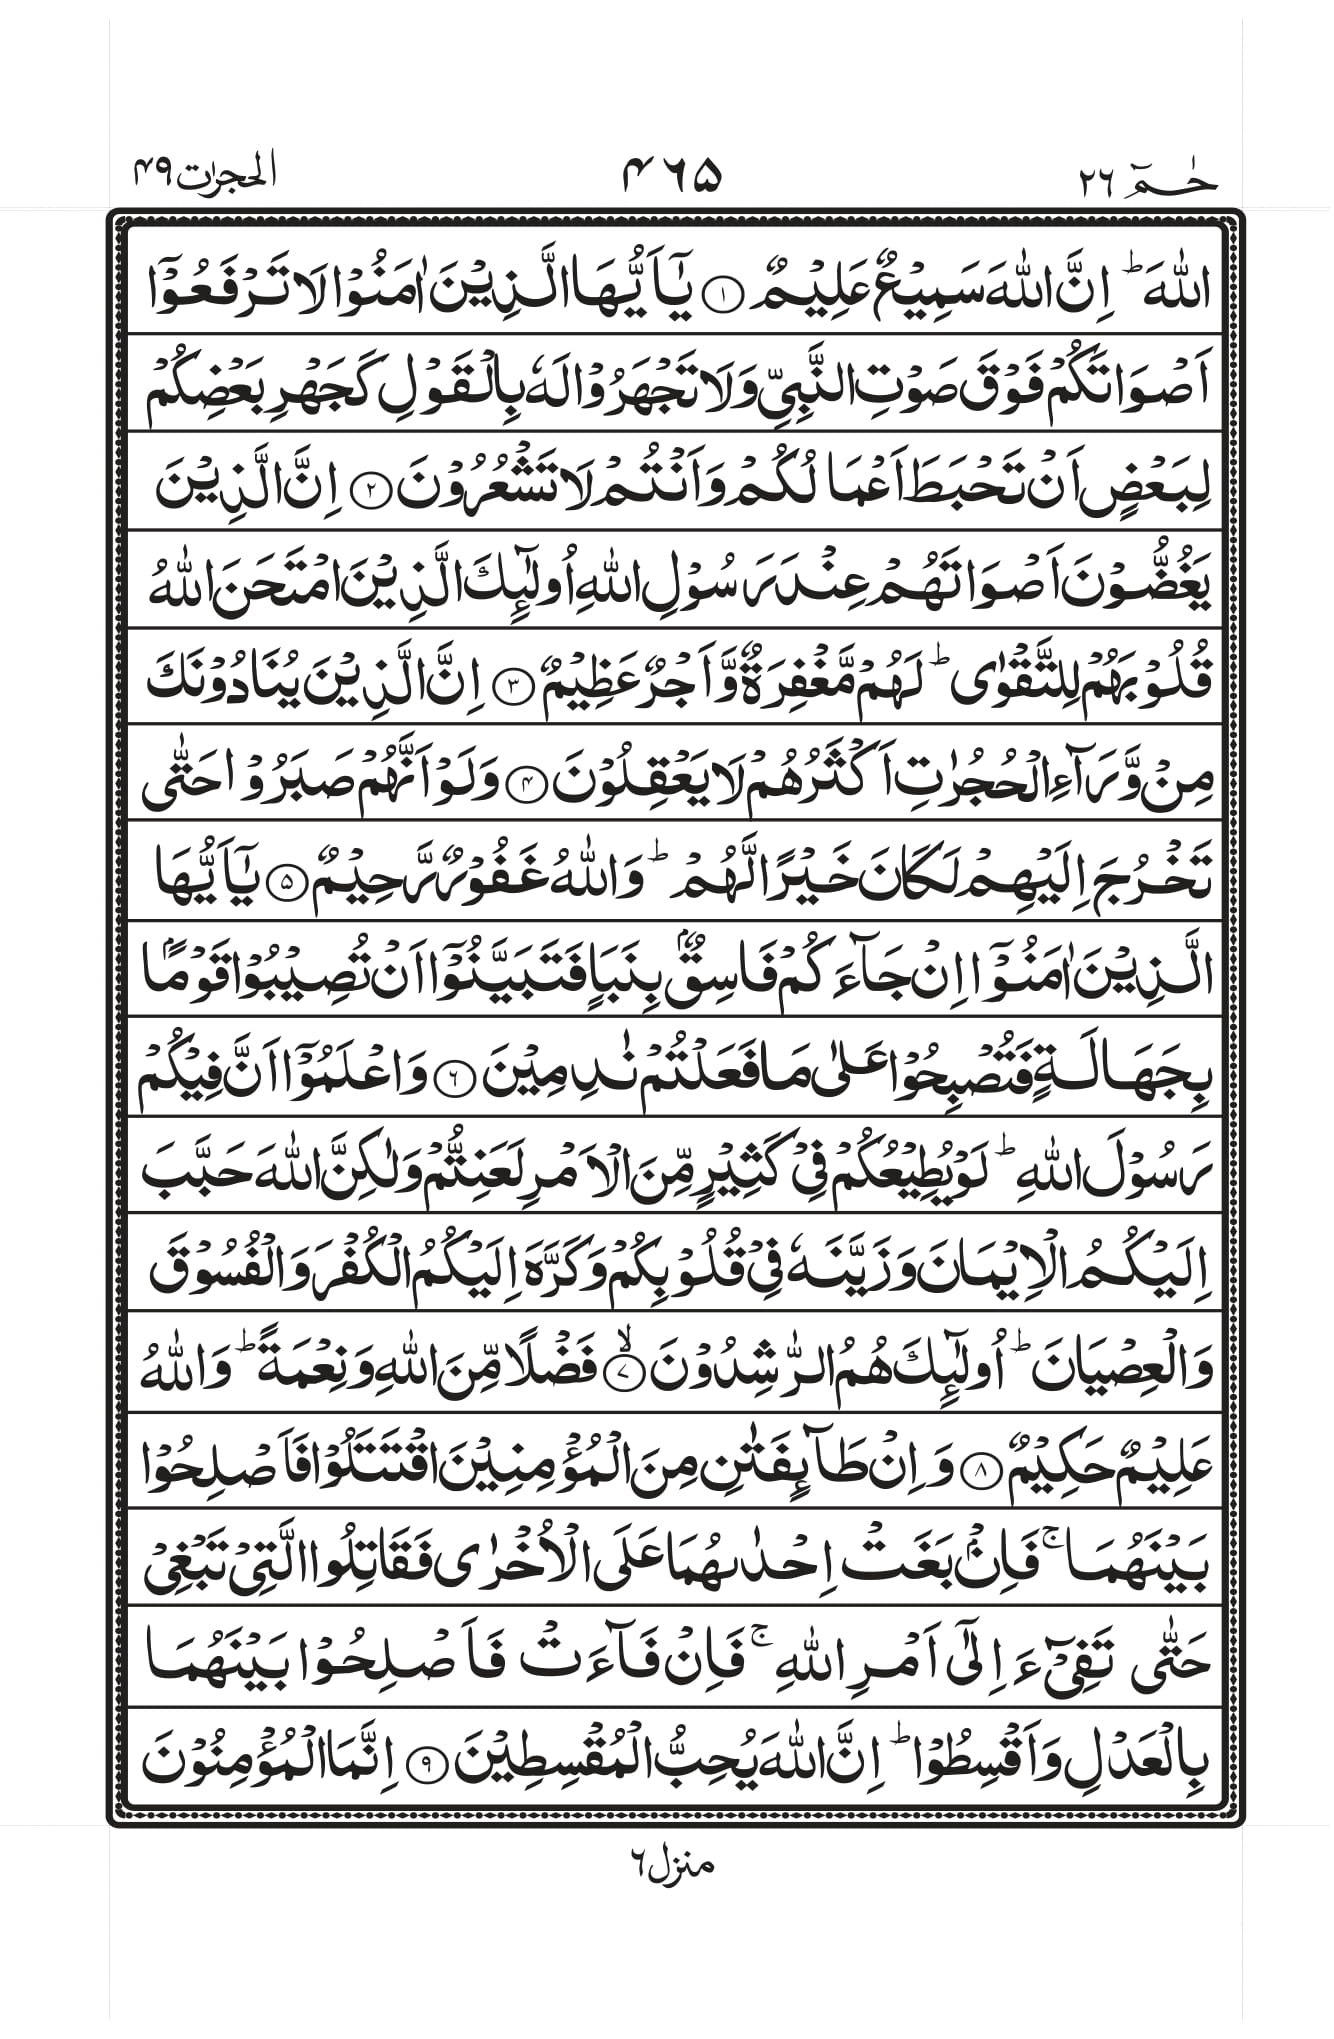 حٰمٓ ٢٦ ۴٦۵ الحجرٰت ۴۹
اللّٰهَ ؕ اِنَّ اللّٰهَ سَمِيْعٌ عَلِيْمٌ ﴿۱﴾ يٰٓاَيُّهَا الَّذِيْنَ اٰمَنُوْا لَا تَرْفَعُوْٓا
اَصْوَاتَكُمْ فَوْقَ صَوْتِ النَّبِيِّ وَلَا تَجْهَرُوْا لَهٗ بِالْقَوْلِ كَجَهْرِ بَعْضِكُمْ
لِبَعْضٍ اَنْ تَحْبَطَ اَعْمَالُكُمْ وَاَنْتُمْ لَا تَشْعُرُوْنَ ﴿۲﴾ اِنَّ الَّذِيْنَ
يَغُضُّوْنَ اَصْوَاتَهُمْ عِنْدَ رَسُوْلِ اللّٰهِ اُولٰٓئِكَ الَّذِيْنَ امْتَحَنَ اللّٰهُ
قُلُوْبَهُمْ لِلتَّقْوٰى ؕ لَهُمْ مَّغْفِرَةٌ وَّاَجْرٌ عَظِيْمٌ ﴿۳﴾ اِنَّ الَّذِيْنَ يُنَادُوْنَكَ
مِنْ وَّرَآءِ الْحُجُرٰتِ اَكْثَرُهُمْ لَا يَعْقِلُوْنَ ﴿۴﴾ وَلَوْ اَنَّهُمْ صَبَرُوْا حَتّٰى
تَخْرُجَ اِلَيْهِمْ لَكَانَ خَيْرًا لَّهُمْ ؕ وَاللّٰهُ غَفُوْرٌ رَّحِيْمٌ ﴿۵﴾ يٰٓاَيُّهَا
الَّذِيْنَ اٰمَنُوْٓا اِنْ جَآءَكُمْ فَاسِقٌۢ بِنَبَاٍ فَتَبَيَّنُوْٓا اَنْ تُصِيْبُوْا قَوْمًاۢ
بِجَهَالَةٍ فَتُصْبِحُوْا عَلٰى مَا فَعَلْتُمْ نٰدِمِيْنَ ﴿۶﴾ وَاعْلَمُوْٓا اَنَّ فِيْكُمْ
رَسُوْلَ اللّٰهِ ؕ لَوْ يُطِيْعُكُمْ فِيْ كَثِيْرٍ مِّنَ الْاَمْرِ لَعَنِتُّمْ وَلٰكِنَّ اللّٰهَ حَبَّبَ
اِلَيْكُمُ الْاِيْمَانَ وَزَيَّنَهٗ فِيْ قُلُوْبِكُمْ وَكَرَّهَ اِلَيْكُمُ الْكُفْرَ وَالْفُسُوْقَ
وَالْعِصْيَانَ ؕ اُولٰٓئِكَ هُمُ الرّٰشِدُوْنَ ۙ﴿۷﴾ فَضْلًا مِّنَ اللّٰهِ وَنِعْمَةً ؕ وَاللّٰهُ
عَلِيْمٌ حَكِيْمٌ ﴿۸﴾ وَاِنْ طَآئِفَتٰنِ مِنَ الْمُؤْمِنِيْنَ اقْتَتَلُوْا فَاَصْلِحُوْا
بَيْنَهُمَا ۚ فَاِنْۢ بَغَتْ اِحْدٰىهُمَا عَلَى الْاُخْرٰى فَقَاتِلُوا الَّتِيْ تَبْغِيْ
حَتّٰى تَفِيْٓءَ اِلٰٓى اَمْرِ اللّٰهِ ۚ فَاِنْ فَآءَتْ فَاَصْلِحُوْا بَيْنَهُمَا
بِالْعَدْلِ وَاَقْسِطُوْا ؕ اِنَّ اللّٰهَ يُحِبُّ الْمُقْسِطِيْنَ ﴿۹﴾ اِنَّمَا الْمُؤْمِنُوْنَ
منزل ٦